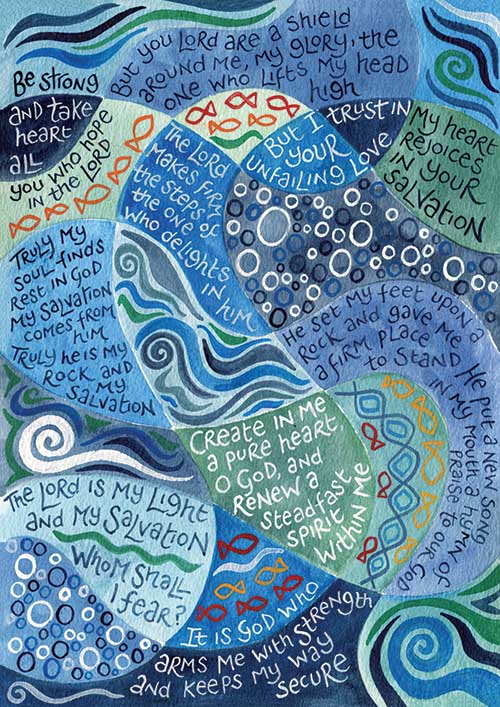 But you Lord are a shield
around me, my glory, the
one who lifts my head
high
Be strong
and take
heart
all
you who hope
in the Lord
The Lord
makes firm
the steps of
the one of
who delights
in him
But I trust in
your
unfailing love
My heart
rejoices
in your
salvation
Truly my
soul finds
rest in God
My salvation
comes from
him
Truly he is my
rock and
my
salvation
He set my feet upon a
rock and gave me
a firm place
to stand
He put a new song
in my mouth a hymn of
praise to our God
Create in me
a pure heart
O God, and
renew a
steadfast
spirit
within me
The Lord is my light
and my salvation
Whom shall
I fear?
It is God who
arms me with strength
and keeps my way
secure